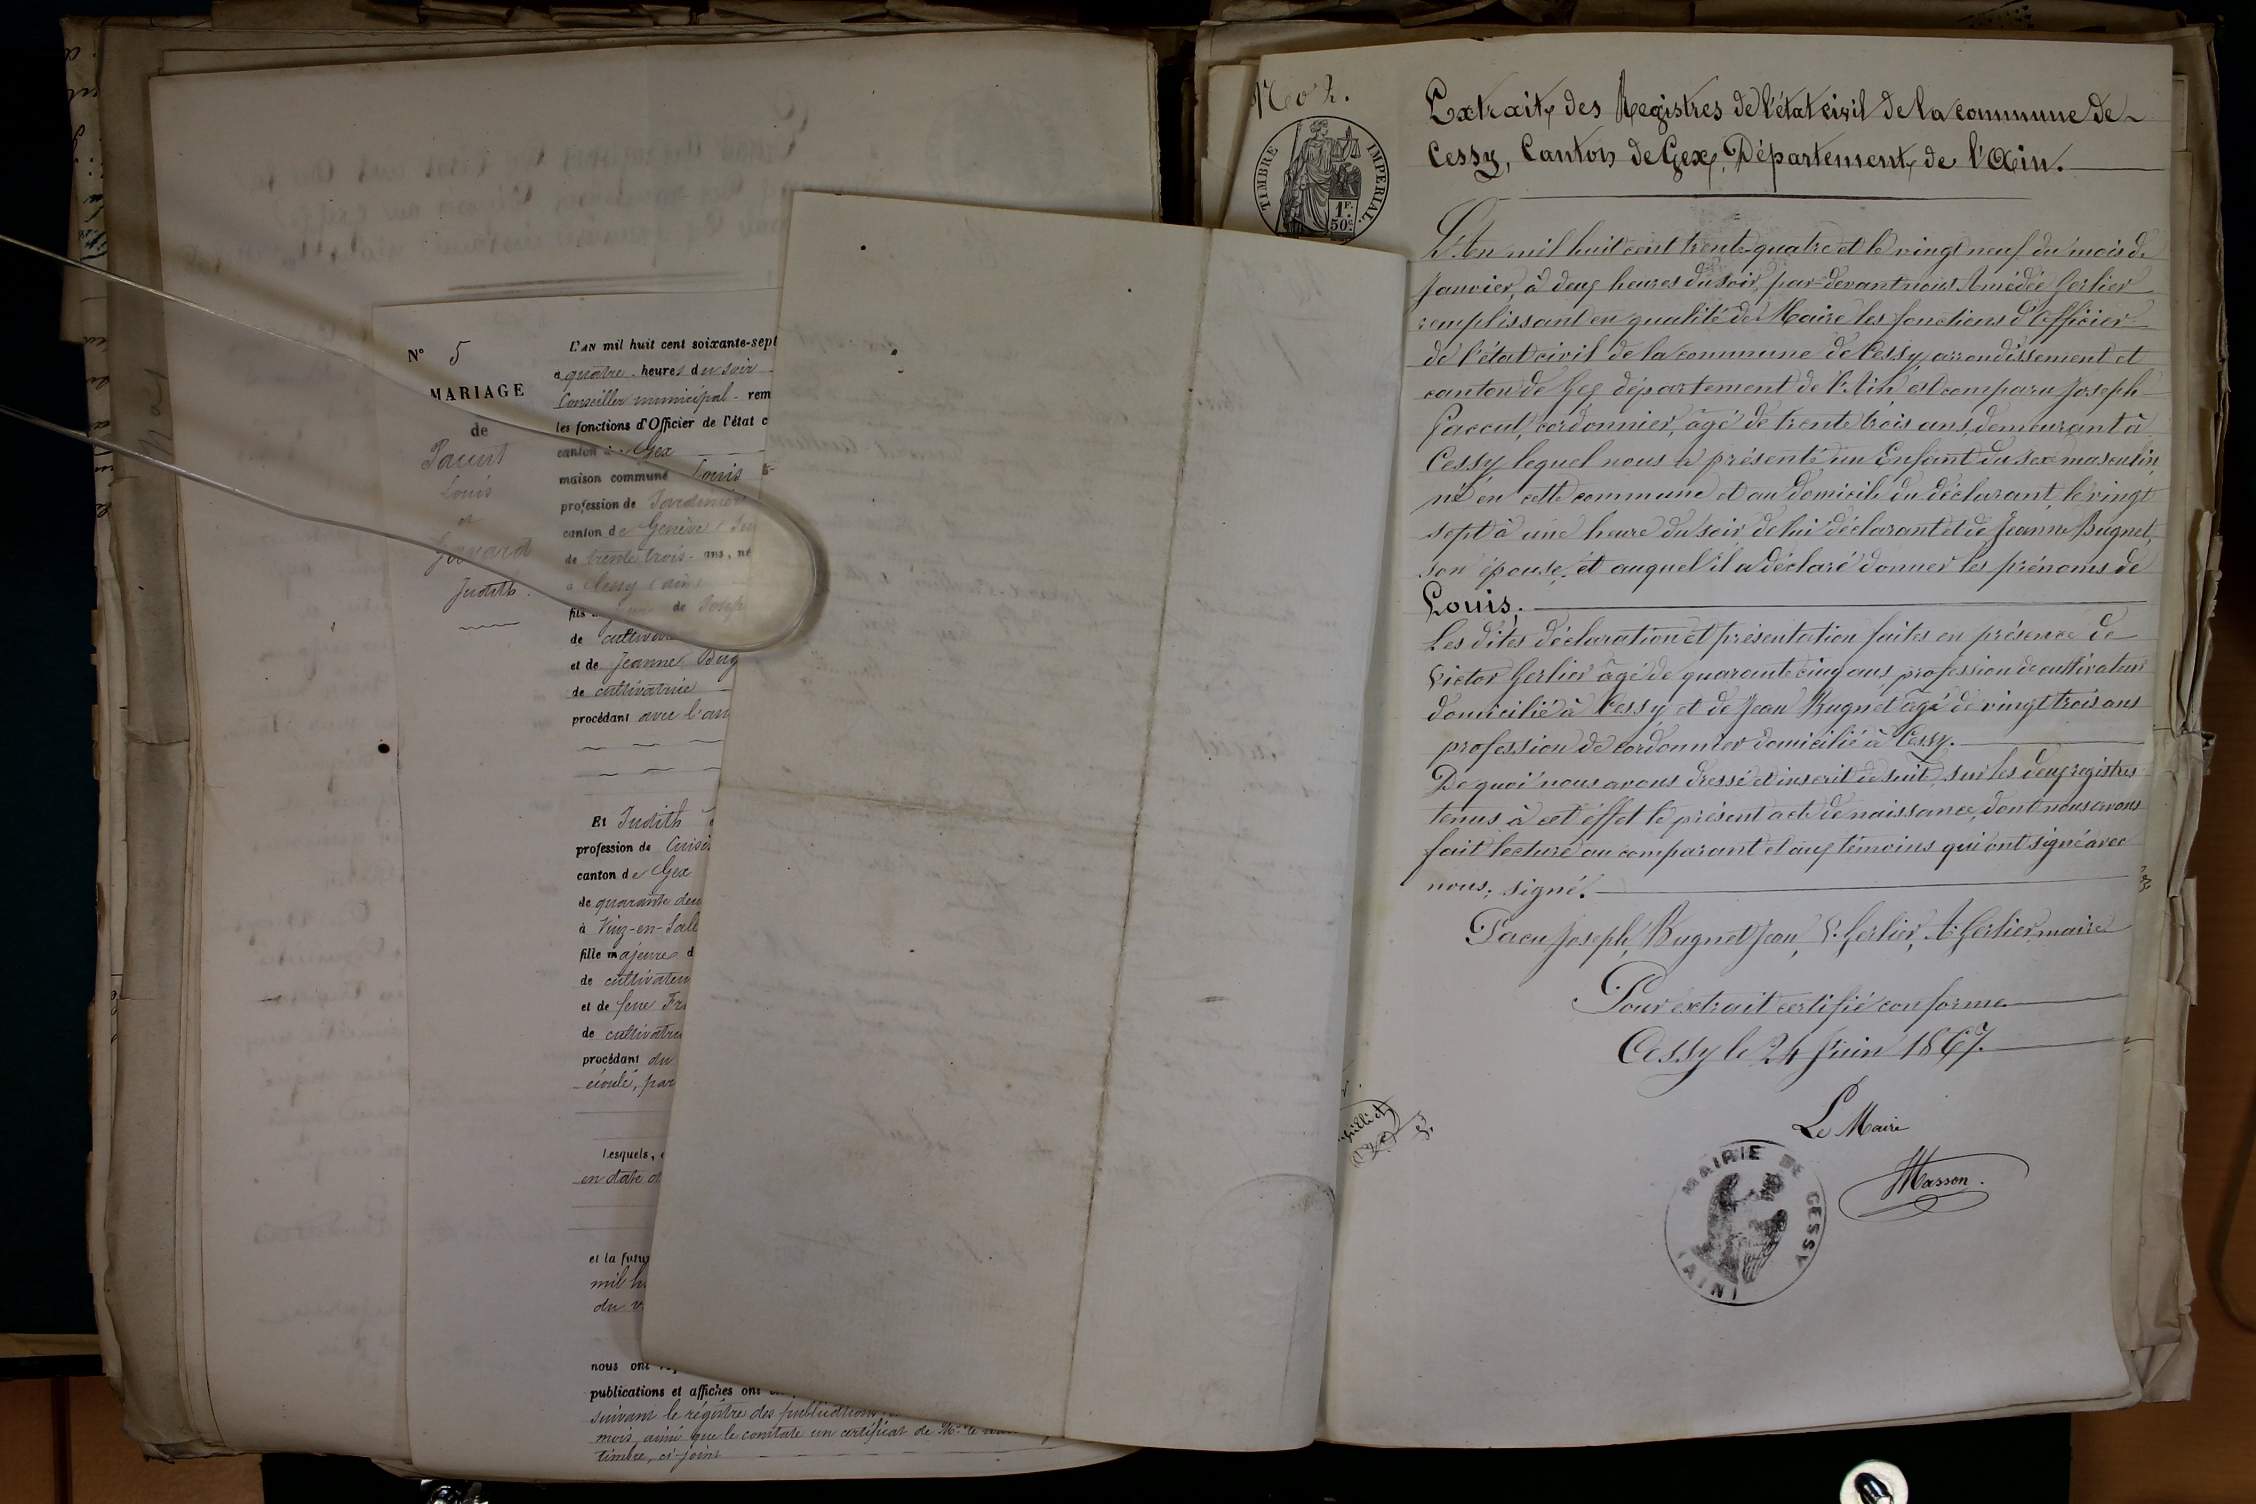 N° 5
MARIAGE
de
Louis
et
Judith.
L'AN mil huit cent soixante-sept
à quatre heures du soir
Conseiller municipal - rem
les fonctions d'Officier de l'état c
canton de Gex
maison commune Louis
profession de Jardinier
canton de Genève
de trente trois ans, né
à Cessy (ain)
fils de
de cultivateur
et de Jeanne Bug
de cultivatrice
procédant avec l'au
Et Judith
profession de Cuisi
canton de Gex
de quarante deu
à Viuz-en-Sall
fille majeure d
de cultivateu
et de feue Fra
de cultivatri
procédant du
écoulé, par
Lesquels,
en date d
et la futu
mil h
du v
nous ont
publications et affiches ont
suivant le régistre des publications
mois, ainsi que le constate un certificat de Mr. le
timbre, ci-joint
No 2.
TIMBRE IMPERIAL.
1F.
50c
Extrait des Registres de l'état civil de la commune de
Cessy, Canton de Gex, Département de l'Ain.
L'An mil huit cent trente-quatre et le vingt neuf du mois de
Janvier, à deux heures du soir, par-devant nous Amédée Gerlier
remplissant en qualité de Maire les fonctions d'Officier
de l'état civil de la commune de Cessy, arrondissement et
canton de Gex département de l'Ain est comparu Joseph
Paccut, cordonnier, âgé de trente trois ans, demeurant à
Cessy lequel nous a présenté un Enfant du sexe masculin
né en cette commune et au domicile du déclarant, le vingt
sept à une heure du soir de lui déclarant et de Jeanne Bugnet,
son épouse, et auquel il a déclaré donner les prénoms de
Louis.
Les dites déclaration et présentation faites en présence de
Victor Gerlier âgé de quarante cinq ans, profession de cultivateur
domicilié à Cessy et de Jean Bugnet âgé de vingt trois ans
profession de cordonnier domicilié à Cessy.
De quoi nous avons dressé et inscrit de suite sur les deux registres
tenus à cet éffet le présent acte de naissance, dont nous avons
fait lecture au comparant et aux témoins qui ont signé avec
nous, signé.
Pacu Joseph, Bugnet Jean, V. Gerlier, A. Gerlier, maire
Pour extrait certifié conforme
Cessy le 24 Juin 1867.
Le Maire
Masson.
MAIRIE DE CESSY
(AIN)